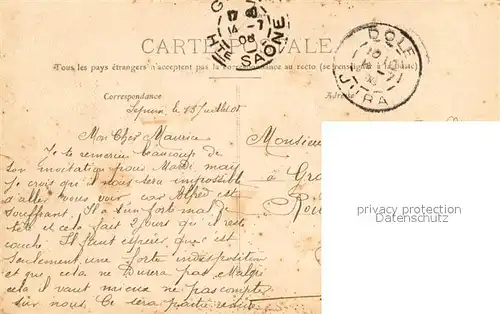 CARTE POSTALE
Tous les pays étrangers n'acceptent pas la correspondance au recto (se renseigner à la poste)
17
14 -7
08
HTE SAONE
DOLE
JURA
Correspondance
Adresse
le 13 Juillet 08
Mon Cher Maurice
Je te remercie beaucoup de
ton invitation pour Mardi mais
Je crois qu'il nous sera impossible
d'aller vous voir car Alfred est
souffrant. Il a une forte mal de
tête et cela fait 2 jours qu'il reste
couché. Il faut espérer que c'est
seulement une forte indisposition
et que cela ne Durera pas Malgré
cela il vaut mieux ne pas compter
sur nous. Ce sera partie remise
Monsieur
à
privacy protection
My_Mosaik